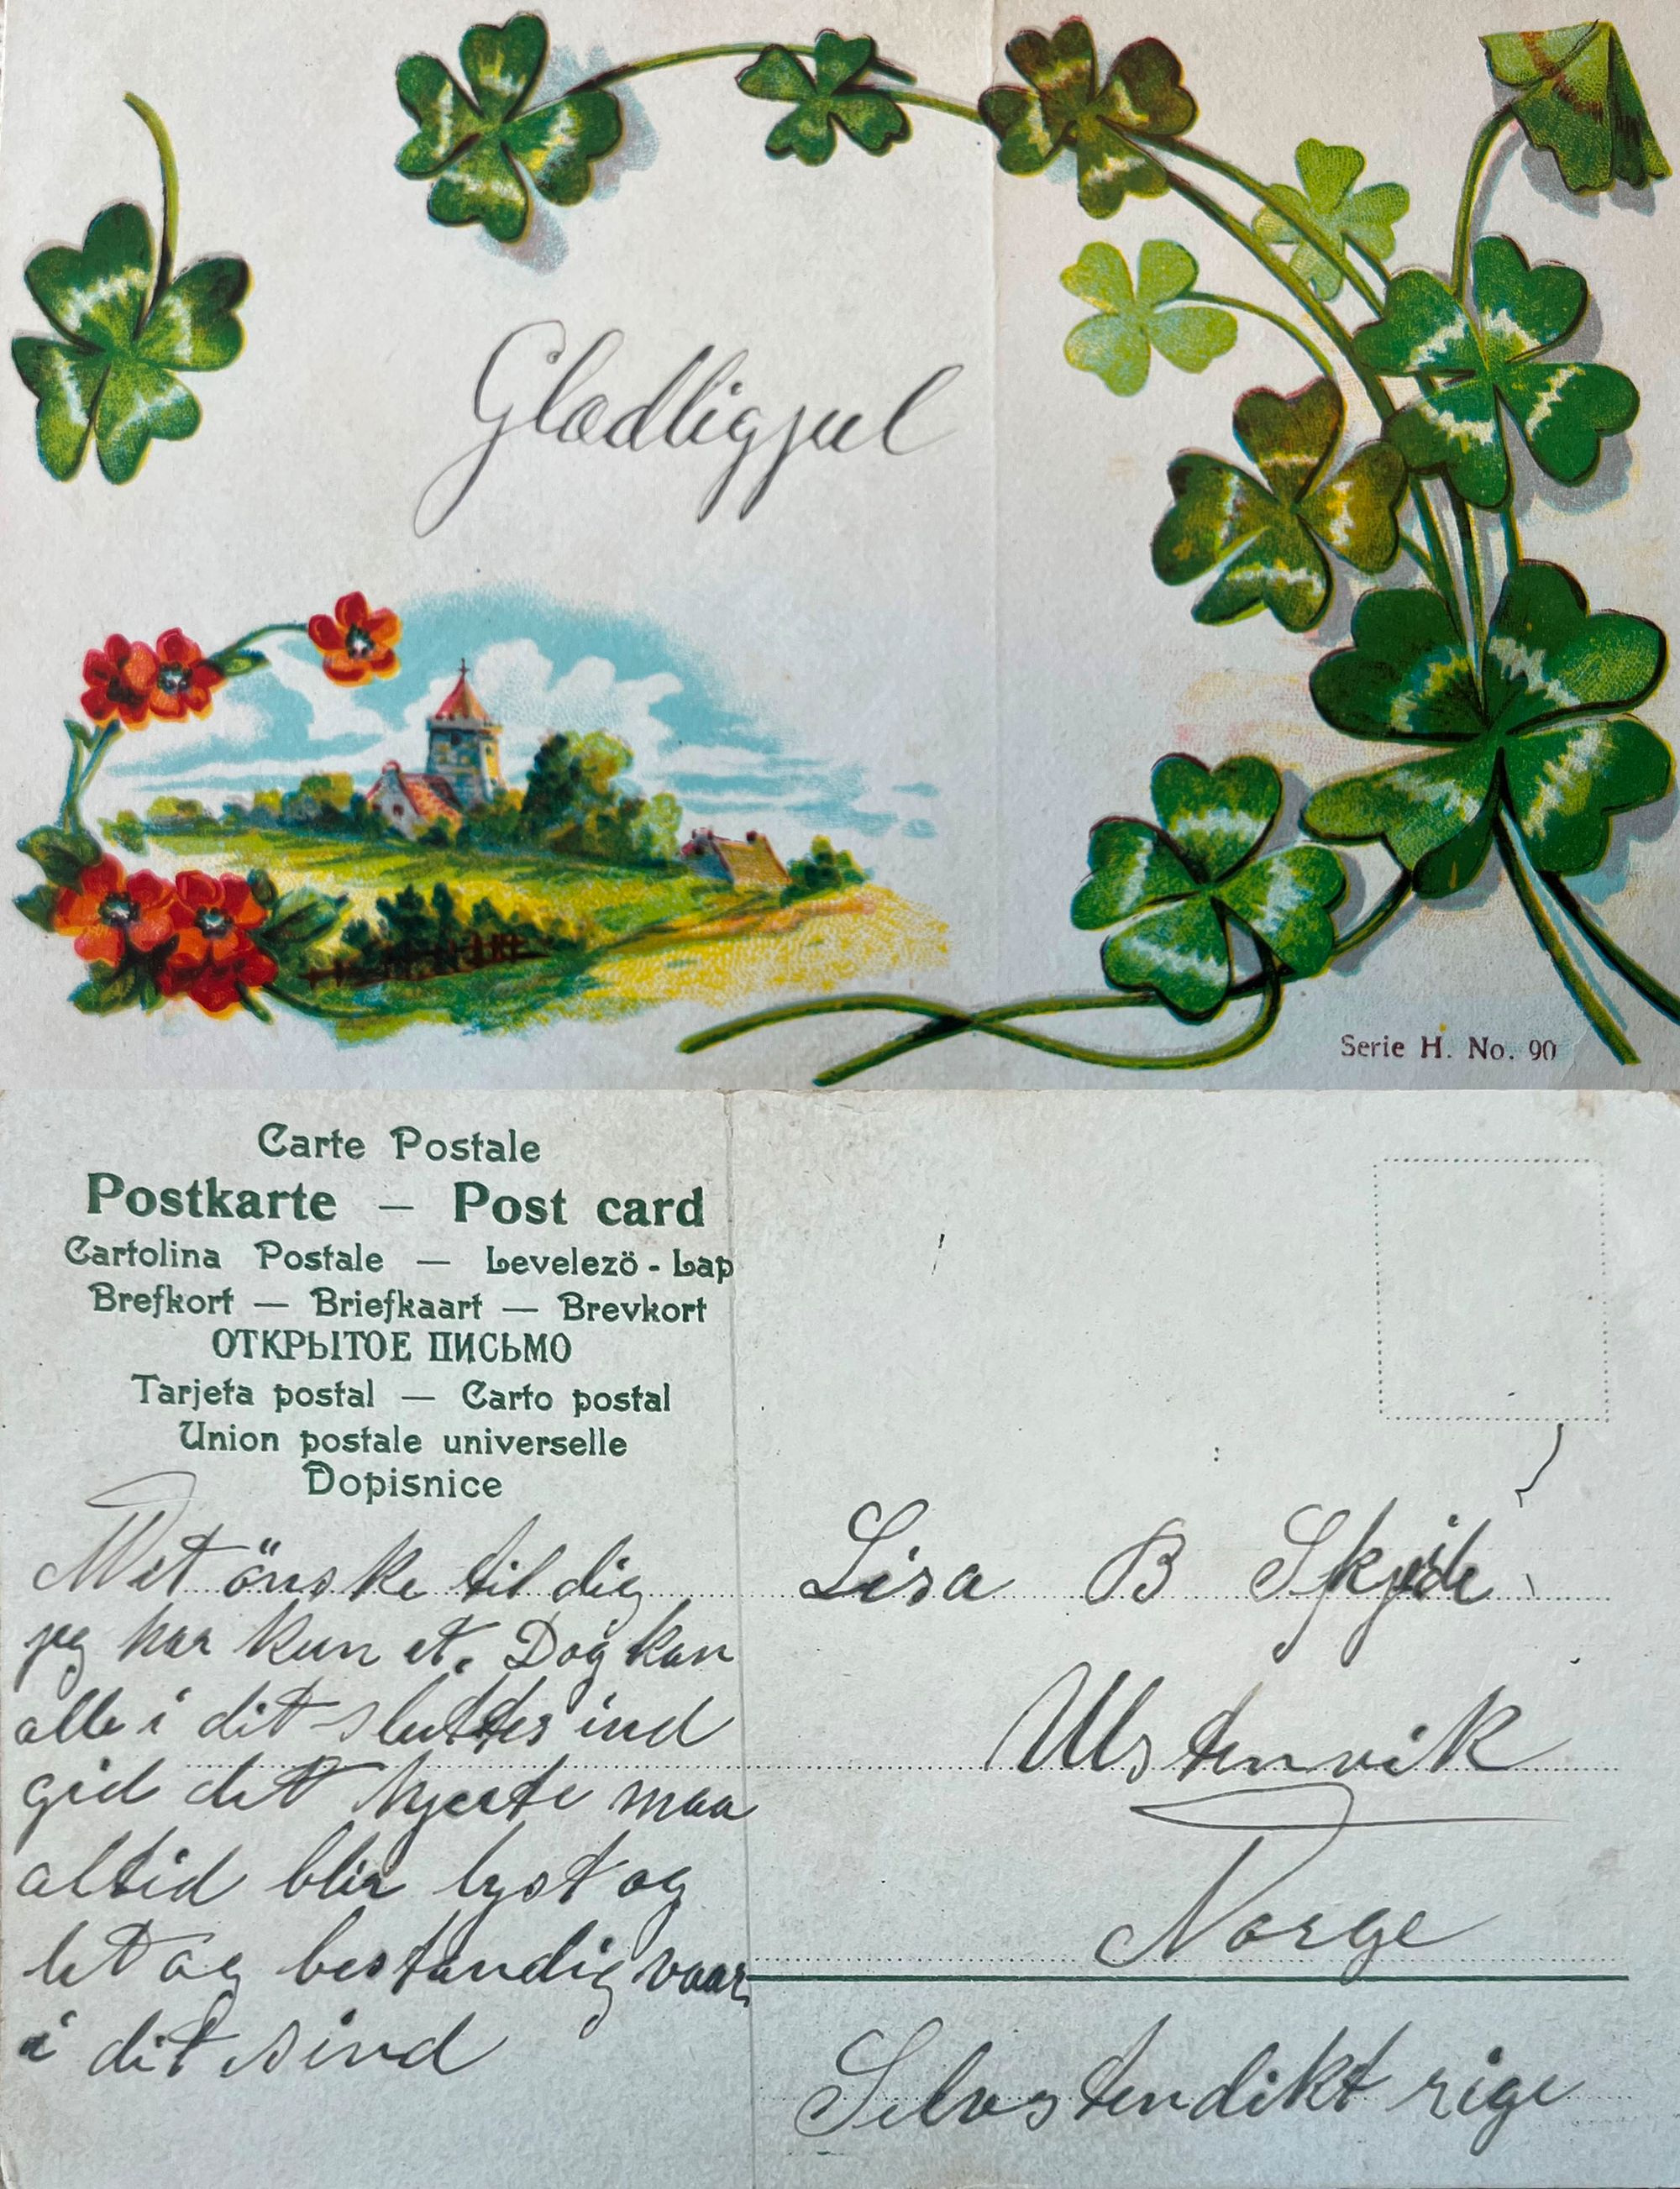 Glædligjul
Serie H. No. 90
Carte Postale
Postkarte — Post card
Cartolina Postale — Levelezö - Lap
Brefkort — Briefkaart — Brevkort
ОТКРЫТОЕ ПИСЬМО
Tarjeta postal — Carto postal
Union postale universelle
Dopisnice
Met önske til dig
jeg har kun et. Dog kan
alle i dit sluttes ind
gid det hjerte maa
altid blir lyst og
let og bestandig vaar
i dit sind
Lisa B Skjeide
Ulstenvik
Norge
Selvstendikt rige